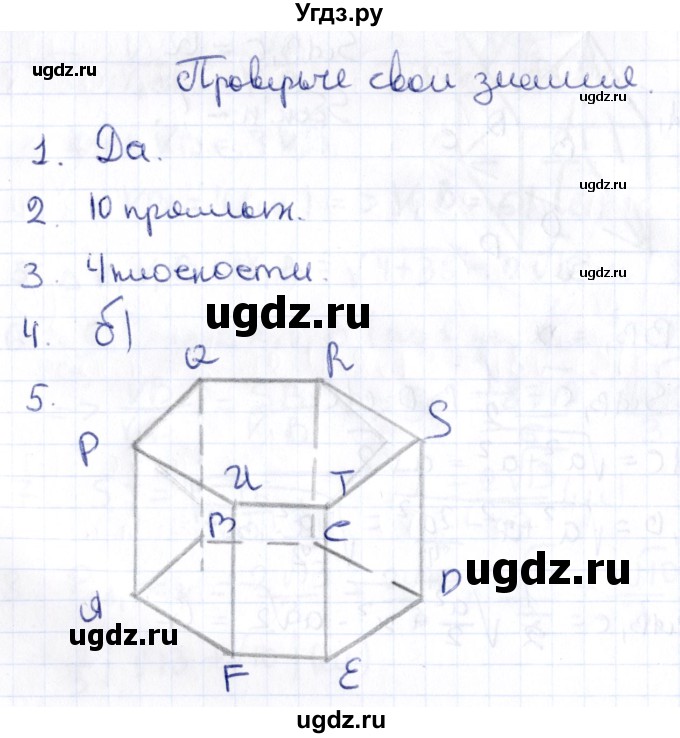 Угдз.ру
ugdz.ru ugdz.ru
Проверьте свои знания.
ugdz.ru
1. Да.
ugdz.ru
2. 10 прямых.
3. 4 плоскости.
ugdz.ru
4. б)
5.
Q R
P S
U T
B C
ugdz.ru
A D
ugdz.ru
F E
ugdz.ru